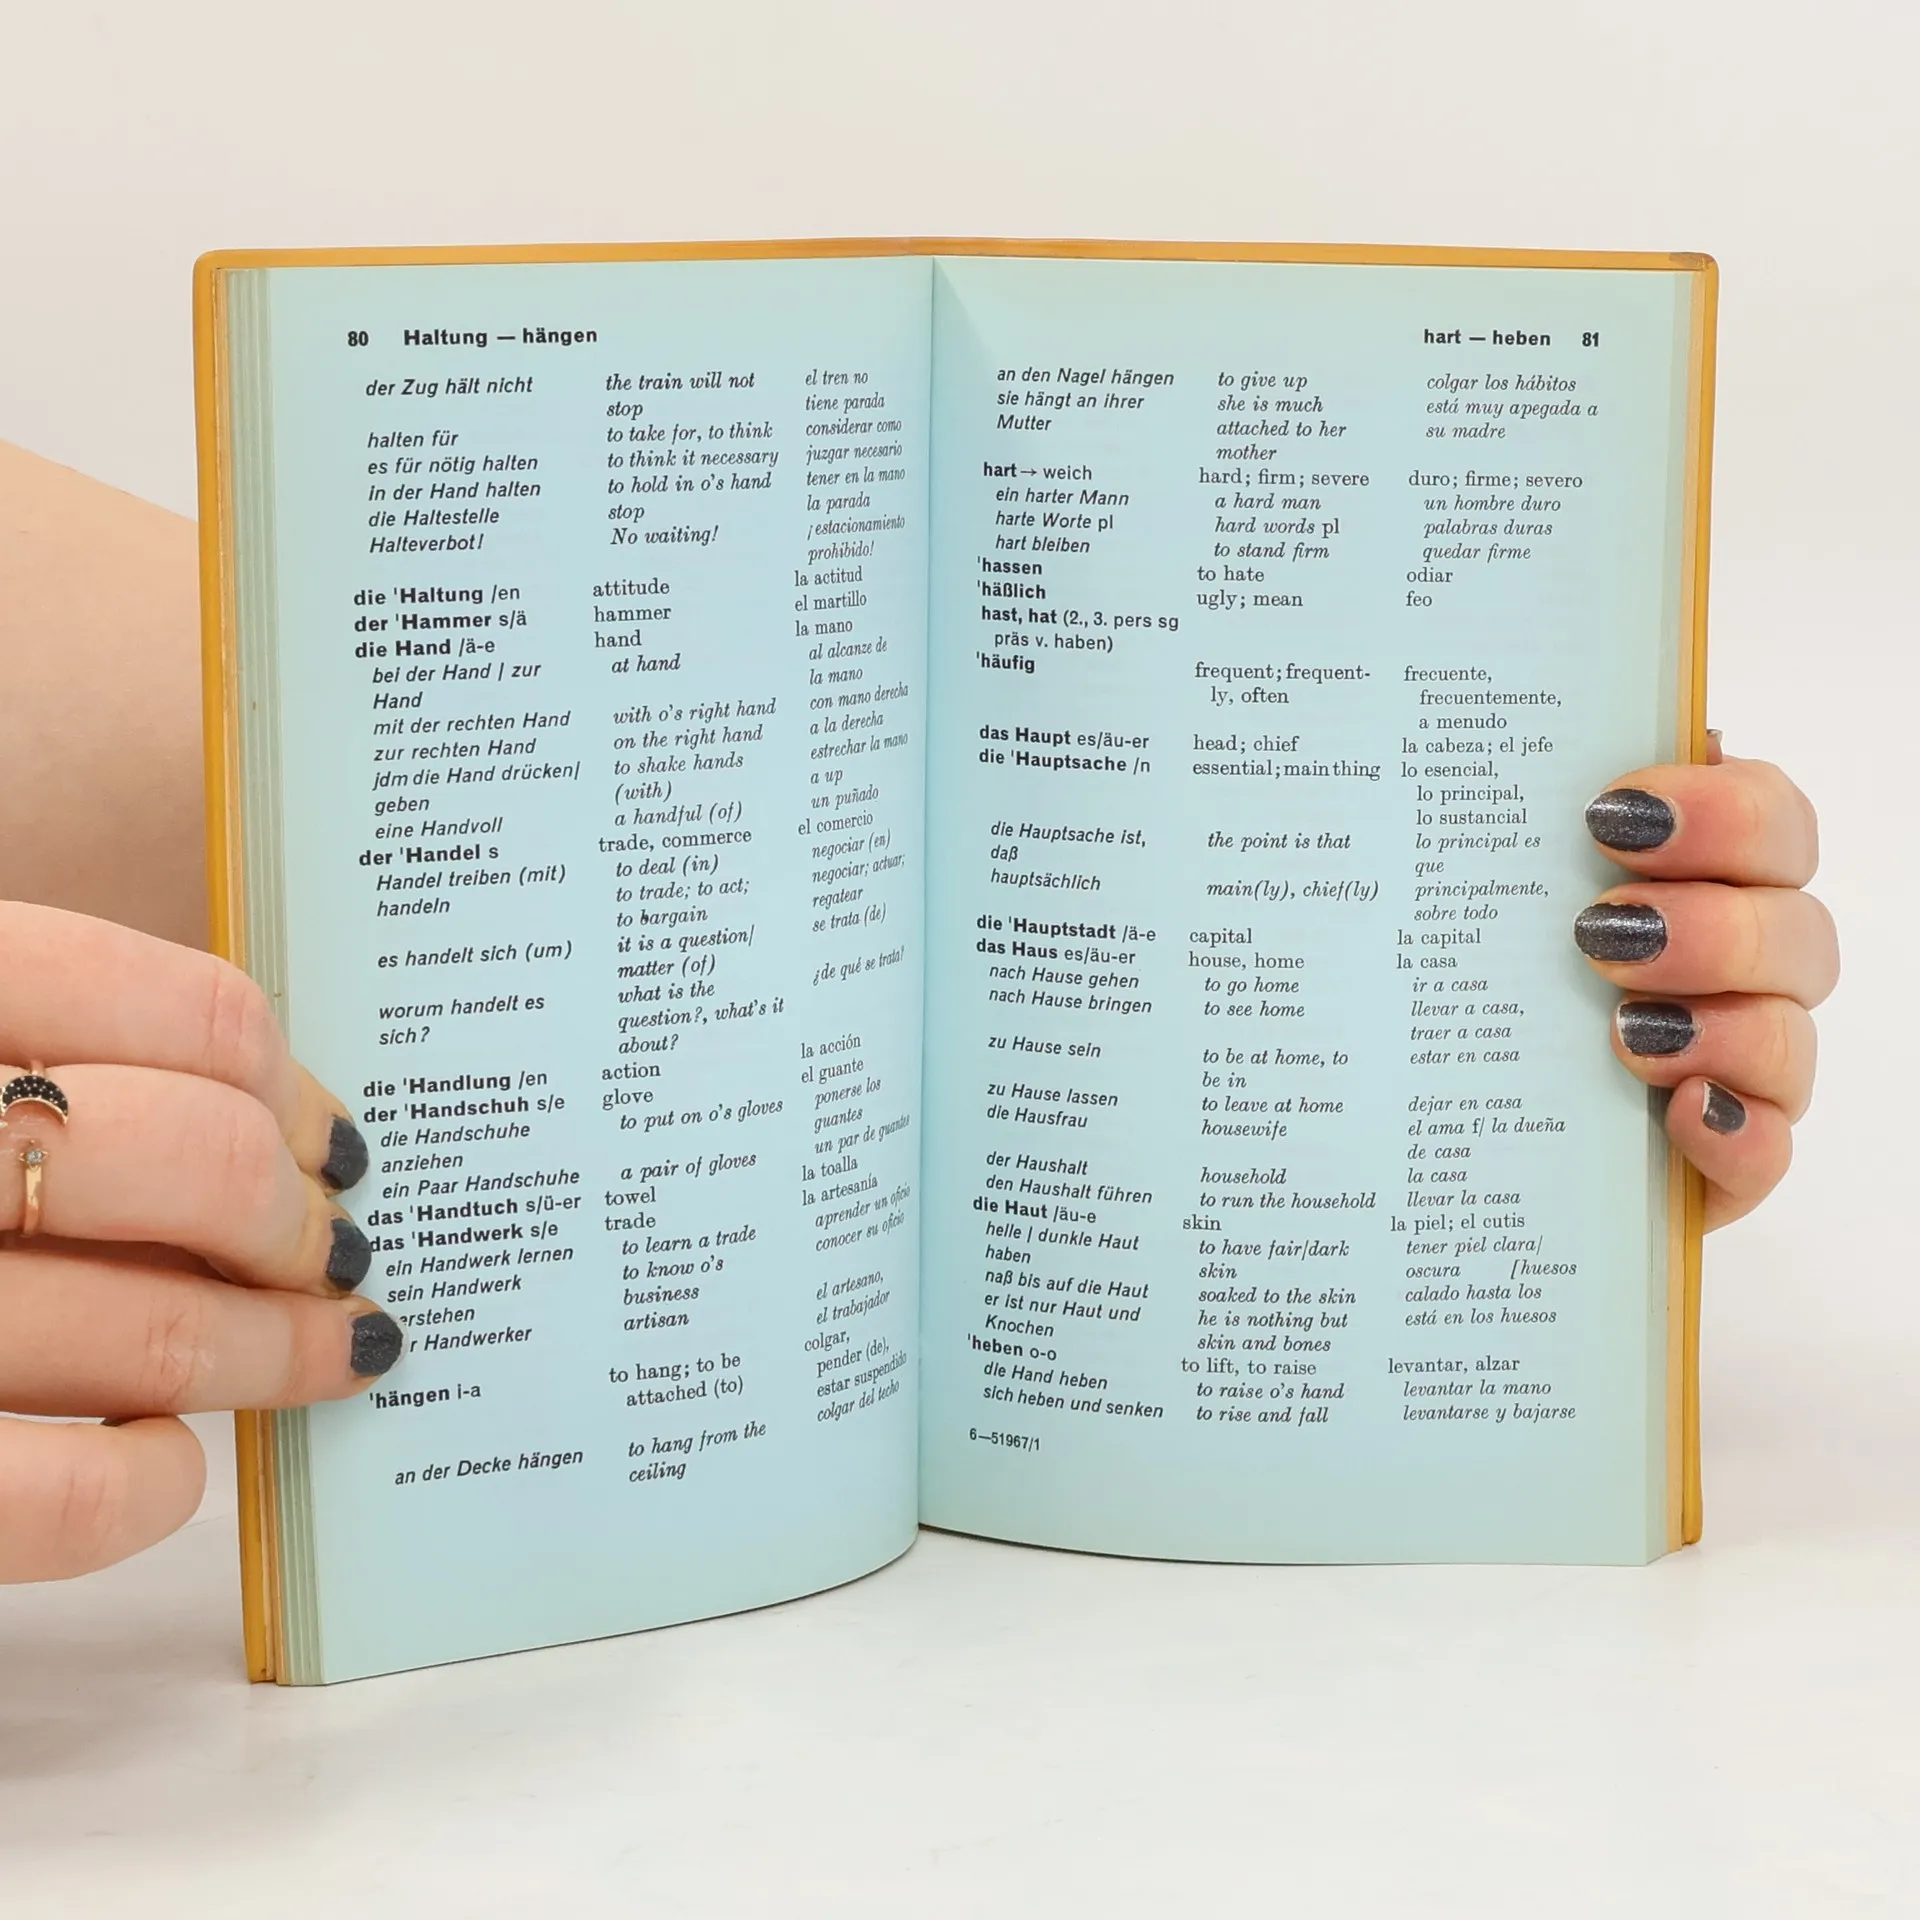 80 Haltung — hängen
der Zug hält nicht
halten für
es für nötig halten
in der Hand halten
die Haltestelle
Halteverbot!
die 'Haltung /en
der 'Hammer s/ä
die Hand /ä-e
bei der Hand | zur
Hand
mit der rechten Hand
zur rechten Hand
jdm die Hand drücken|
geben
eine Handvoll
der 'Handel s
Handel treiben (mit)
handeln
es handelt sich (um)
worum handelt es
sich?
die 'Handlung /en
der 'Handschuh s/e
die Handschuhe
anziehen
ein Paar Handschuhe
das 'Handtuch s/ü-er
das 'Handwerk s/e
ein Handwerk lernen
sein Handwerk
erstehen
r Handwerker
'hängen i-a
an der Decke hängen
the train will not
stop
to take for, to think
to think it necessary
to hold in o's hand
stop
No waiting!
attitude
hammer
hand
at hand
with o's right hand
on the right hand
to shake hands
(with)
a handful (of)
trade, commerce
to deal (in)
to trade; to act;
to bargain
it is a question|
matter (of)
what is the
question?, what's it
about?
action
glove
to put on o's gloves
a pair of gloves
towel
trade
to learn a trade
to know o's
business
artisan
to hang; to be
attached (to)
to hang from the
ceiling
el tren no
tiene parada
considerar como
juzgar necesario
tener en la mano
la parada
¡estacionamiento
prohibido!
la actitud
el martillo
la mano
al alcanze de
la mano
con mano derecha
a la derecha
estrechar la mano
a up
un puñado
el comercio
negociar (en)
negociar; actuar;
regatear
se trata (de)
¿de qué se trata?
la acción
el guante
ponerse los
guantes
un par de guantes
la toalla
la artesanía
aprender un oficio
conocer su oficio
el artesano,
el trabajador
colgar,
pender (de),
estar suspendido
colgar del techo
hart — heben 81
an den Nagel hängen
sie hängt an ihrer
Mutter
hart → weich
ein harter Mann
harte Worte pl
hart bleiben
'hassen
'häßlich
hast, hat (2., 3. pers sg
präs v. haben)
'häufig
das Haupt es/äu-er
die 'Hauptsache /n
die Hauptsache ist,
daß
hauptsächlich
die 'Hauptstadt /ä-e
das Haus es/äu-er
nach Hause gehen
nach Hause bringen
zu Hause sein
zu Hause lassen
die Hausfrau
der Haushalt
den Haushalt führen
die Haut /äu-e
helle | dunkle Haut
haben
naß bis auf die Haut
er ist nur Haut und
Knochen
'heben o-o
die Hand heben
sich heben und senken
to give up
she is much
attached to her
mother
hard; firm; severe
a hard man
hard words pl
to stand firm
to hate
ugly; mean
frequent; frequent-
ly, often
head; chief
essential; main thing
the point is that
main(ly), chief(ly)
capital
house, home
to go home
to see home
to be at home, to
be in
to leave at home
housewife
household
to run the household
skin
to have fair/dark
skin
soaked to the skin
he is nothing but
skin and bones
to lift, to raise
to raise o's hand
to rise and fall
colgar los hábitos
está muy apegada a
su madre
duro; firme; severo
un hombre duro
palabras duras
quedar firme
odiar
feo
frecuente,
frecuentemente,
a menudo
la cabeza; el jefe
lo esencial,
lo principal,
lo sustancial
lo principal es
que
principalmente,
sobre todo
la capital
la casa
ir a casa
llevar a casa,
traer a casa
estar en casa
dejar en casa
el ama f/ la dueña
de casa
la casa
llevar la casa
la piel; el cutis
tener piel clara/
oscura [huesos
calado hasta los
está en los huesos
levantar, alzar
levantar la mano
levantarse y bajarse
6—51967/1